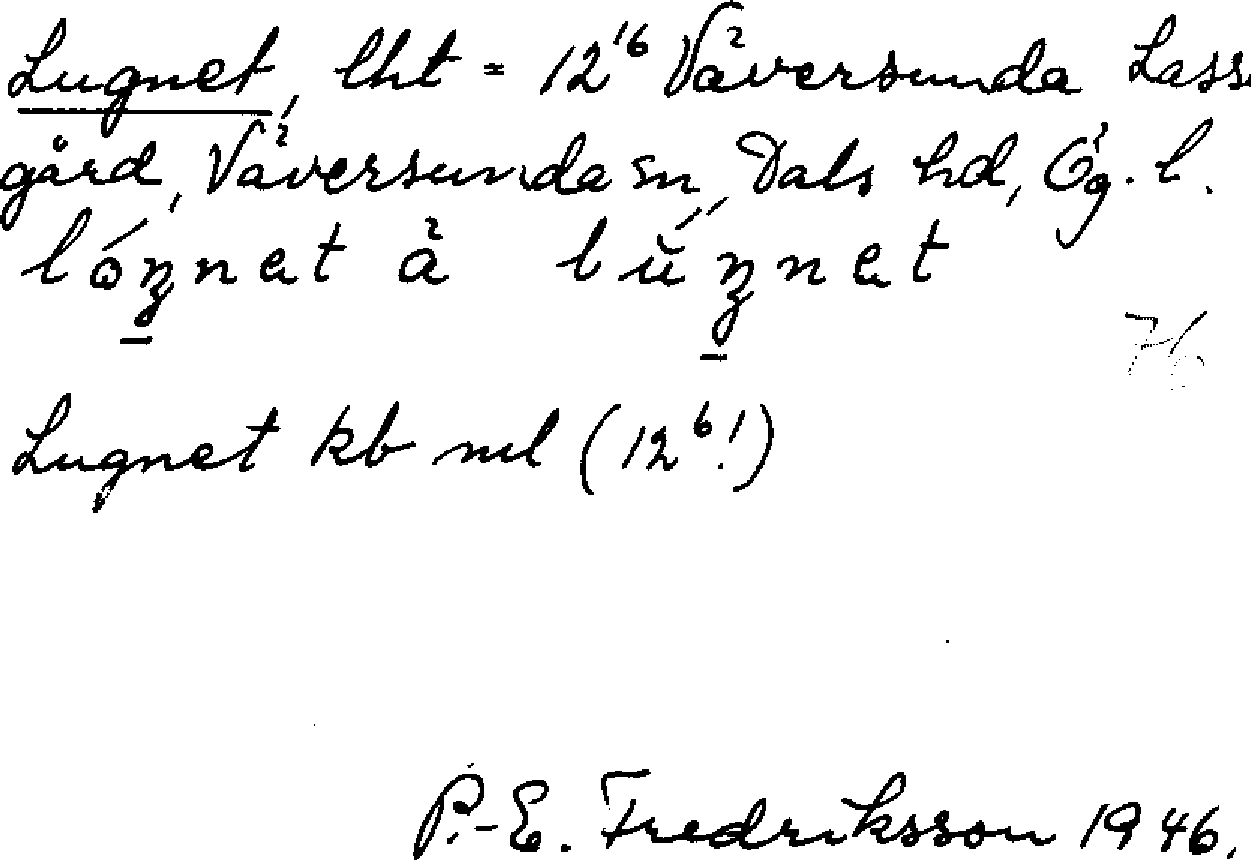 Lugnet, lht = 12¹⁶ Väversunda Lass
gård, Väversunda sn, Dals hd, Ög. l.
lóŋnet à lúŋnet
76
Lugnet kb ml (12⁶!)
P.-E. Fredriksson 1946.